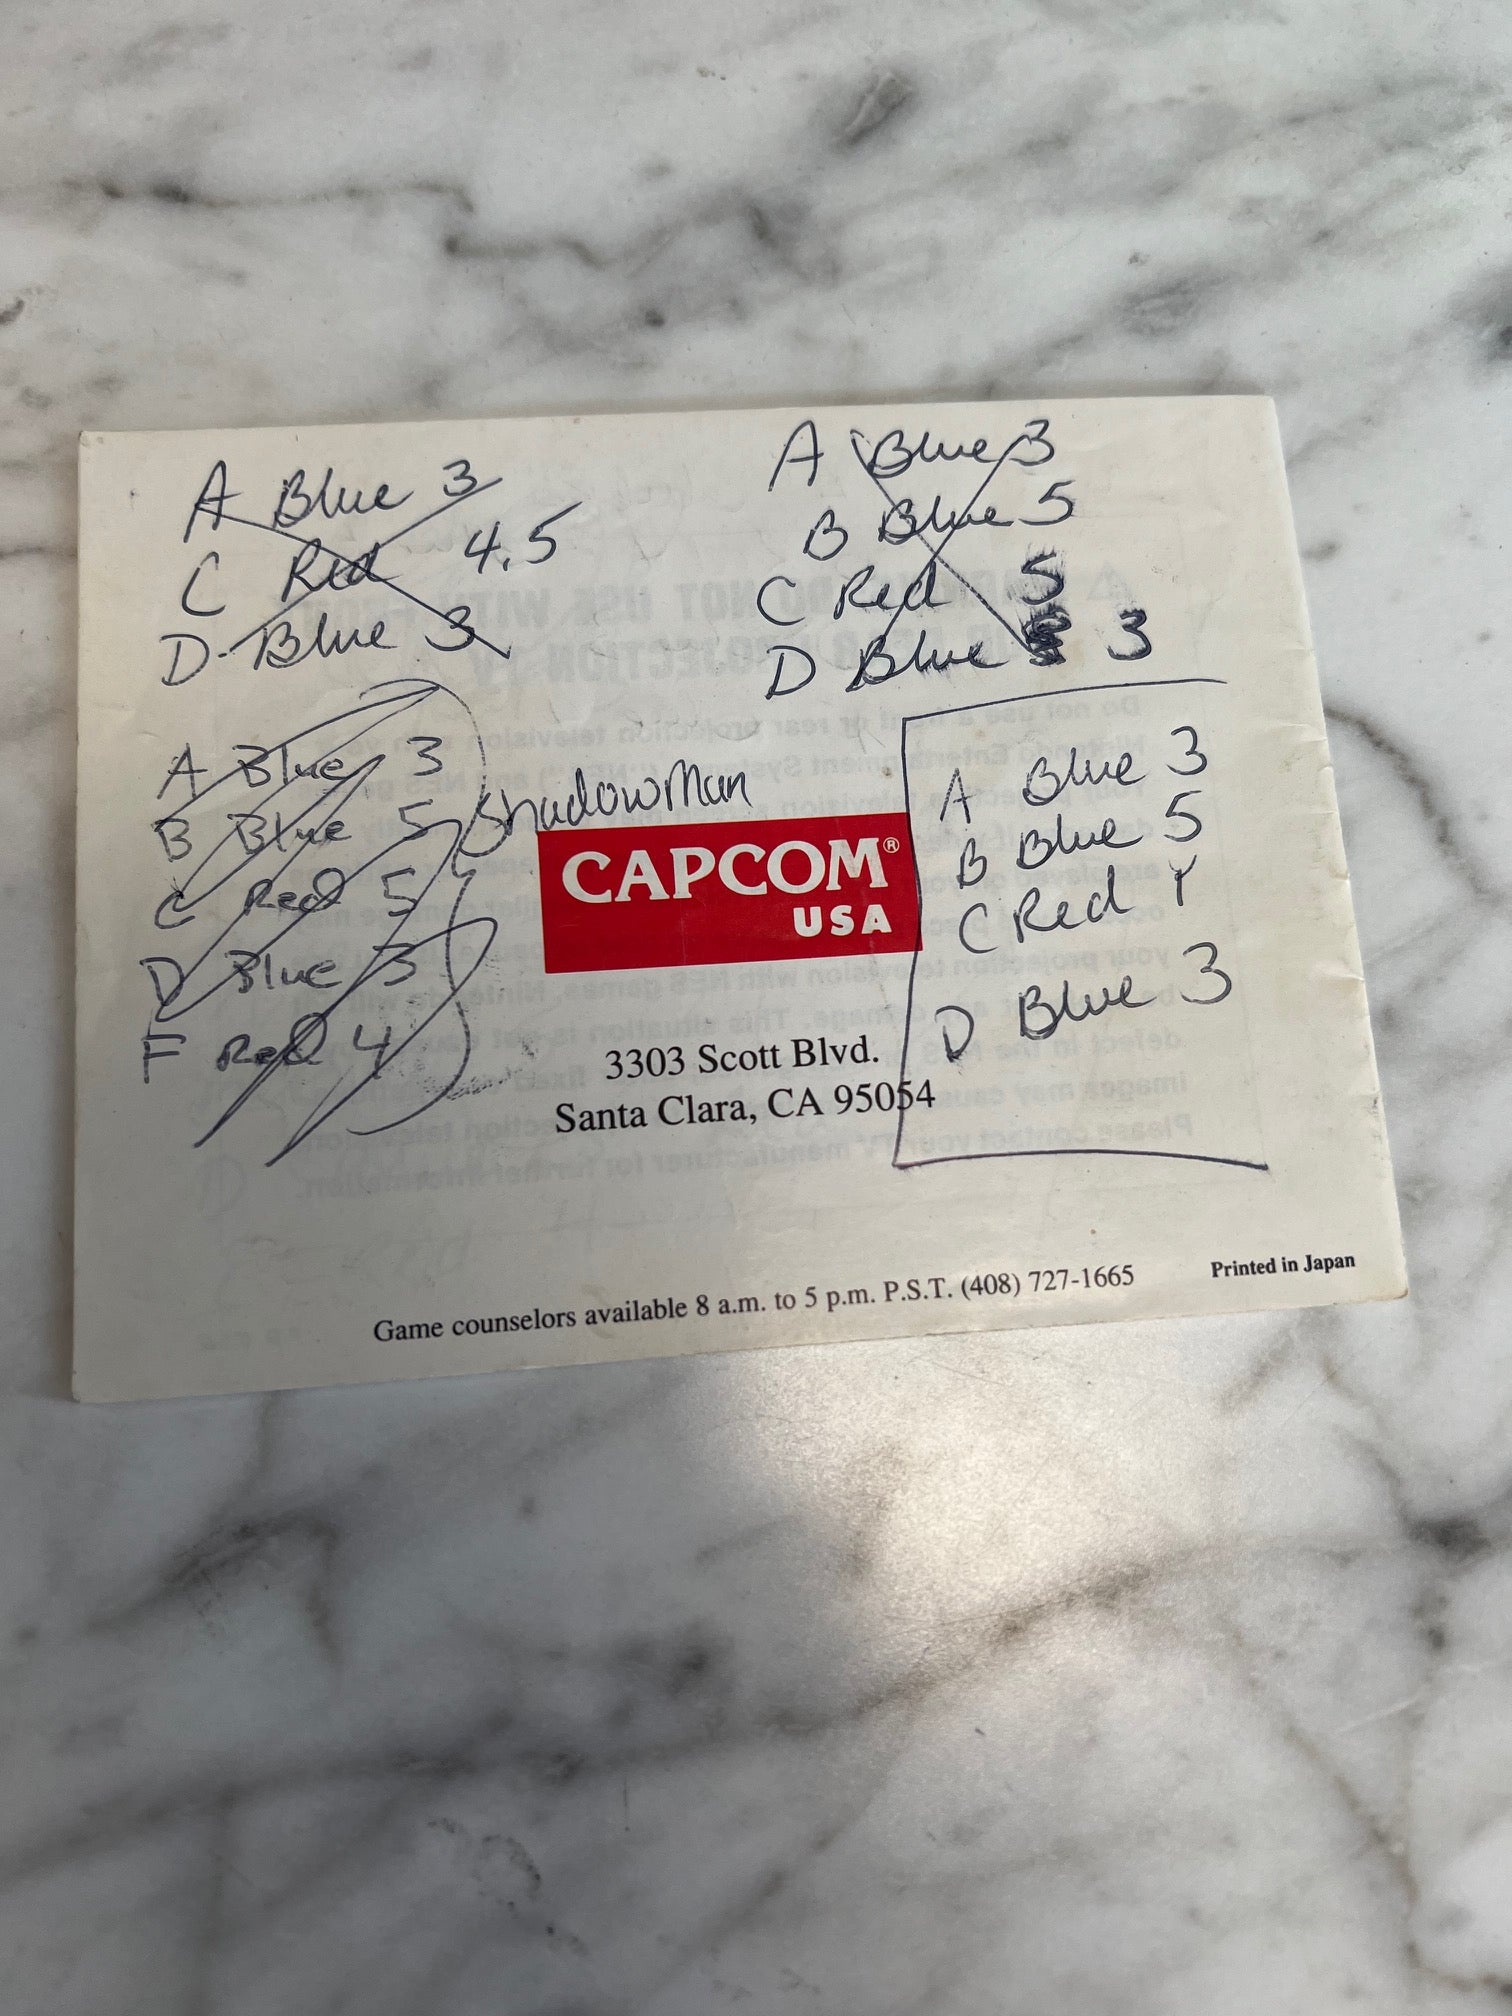 A Blue 3
C Red 4.5
D Blue 3
A Blue 3
B Blue 5
C Red 5
D Blue 3
A Blue 3
B Blue 5
C Red 5
D Blue 3
F Red 4
ShadowMan
CAPCOM®
USA
A Blue 3
B Blue 5
C Red
D Blue 3
3303 Scott Blvd.
Santa Clara, CA 95054
Game counselors available 8 a.m. to 5 p.m. P.S.T. (408) 727-1665
Printed in Japan